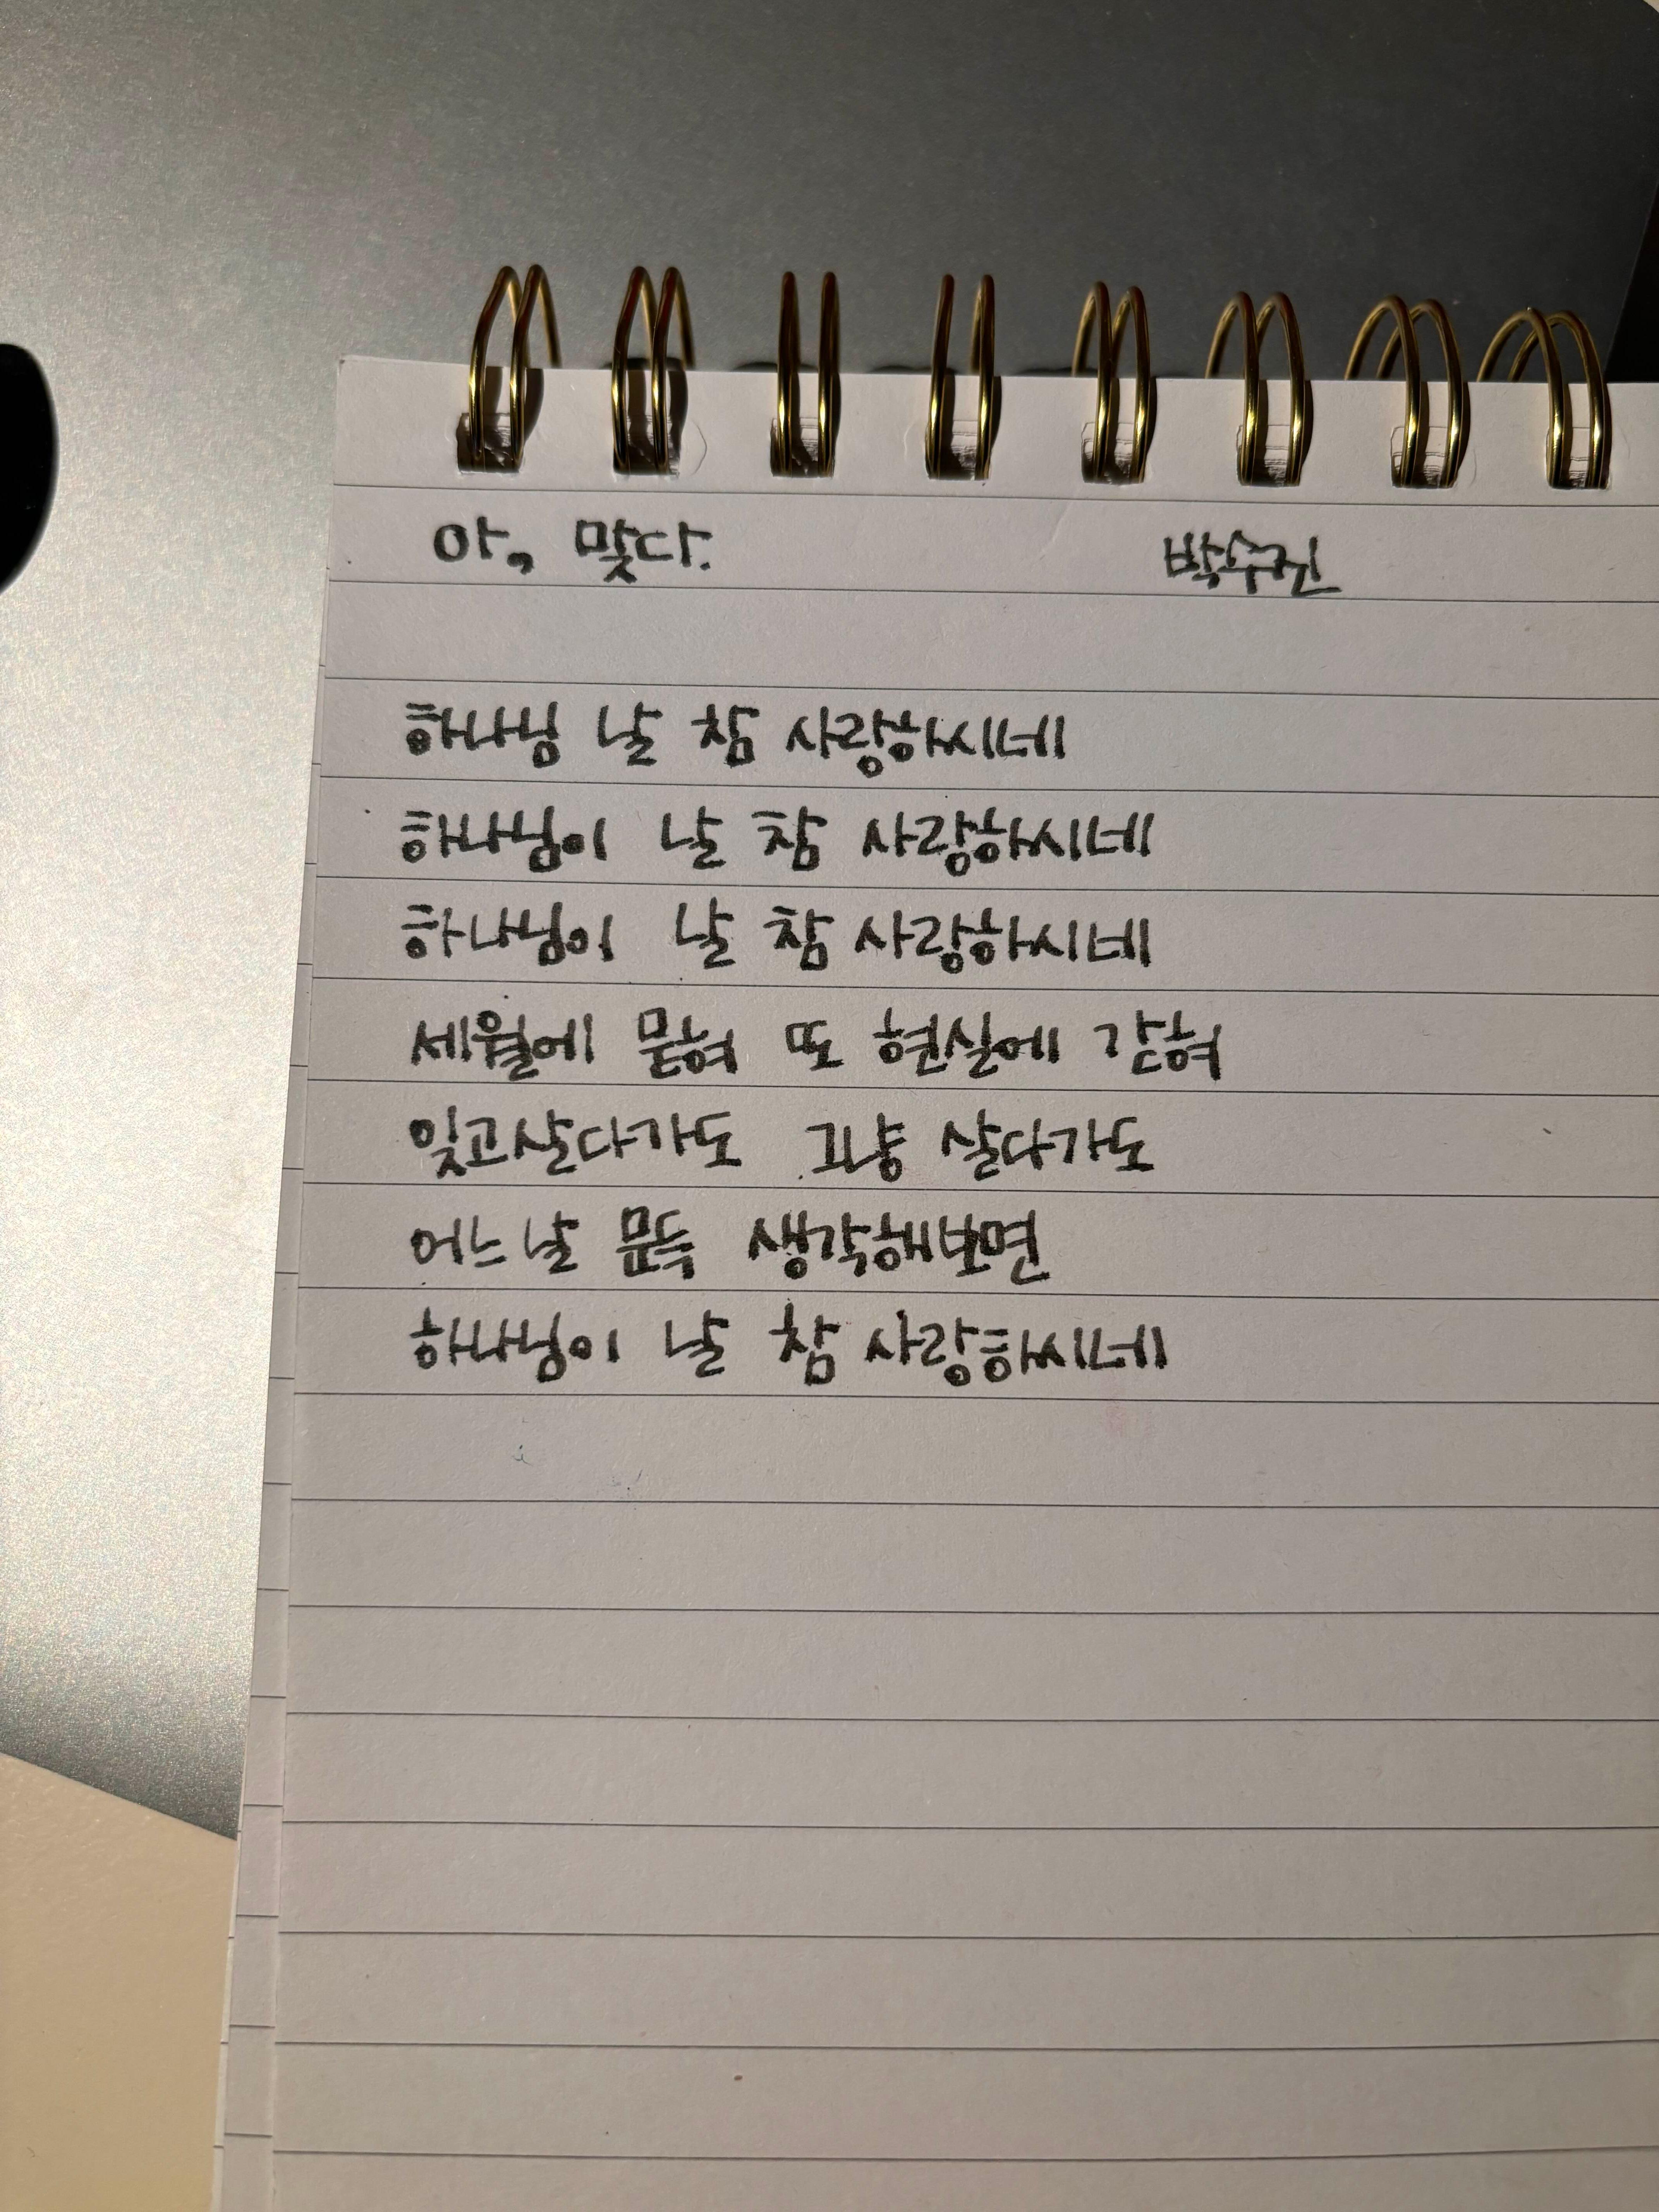 아, 맞다. 박수진
하나님 날 참 사랑하시네
하나님이 날 참 사랑하시네
하나님이 날 참 사랑하시네
세월에 묻혀 또 현실에 갇혀
잊고살다가도 그냥 살다가도
어느날 문득 생각해보면
하나님이 날 참 사랑하시네